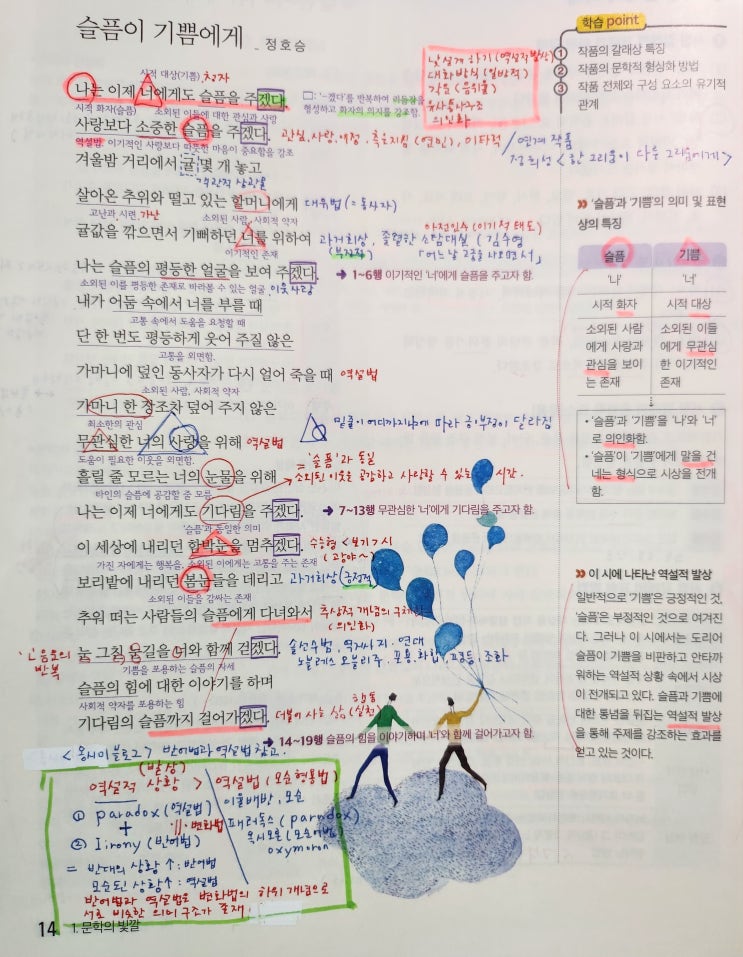 슬픔이 기쁨에게 _ 정호승
학습 point
① 작품의 갈래상 특징
② 작품의 문학적 형상화 방법
③ 작품 전체와 구성 요소의 유기적 관계
낯설게 하기 (역설적 발상)
대화 방식 (일방적)
각운 (음위율)
유사 통사구조
의인화
시적 대상(기쁨) 청자
나는 이제 너에게도 슬픔을 주겠다.
시적 화자(슬픔) 소외된 이들에 대한 관심과 사랑
□: '-겠다'를 반복하여 리듬감을 형성하고 화자의 의지를 강조함.
사랑보다 소중한 슬픔을 주겠다. 관심, 사랑, 애정, 측은지심 (연민), 이타적
역설법 이기적인 사랑보다 따뜻한 마음이 중요함을 강조
연계 작품
정희성 <한 그리움이 다른 그리움에게>
겨울밤 거리에서 귤 몇 개 놓고
객관적 상관물
살아온 추위와 떨고 있는 할머니에게 대유법 (= 동사자)
고난과 시련, 가난 소외된 사람, 사회적 약자
아전인수 (이기적 태도)
귤값을 깎으면서 기뻐하던 너를 위하여 과거회상, 졸렬한 소탐대실 (김수영
이기적인 존재 (부정적) 「어느날 고궁을 나오면서」
나는 슬픔의 평등한 얼굴을 보여 주겠다. → 1~6행 이기적인 '너'에게 슬픔을 주고자 함.
소외된 이를 평등한 존재로 바라볼 수 있는 얼굴 이웃사랑
내가 어둠 속에서 너를 부를 때
고통 속에서 도움을 요청할 때
단 한 번도 평등하게 웃어 주질 않은
고통을 외면함.
가마니에 덮인 동사자가 다시 얼어 죽을 때 역설법
소외된 사람, 사회적 약자
가마니 한 장조차 덮어 주지 않은
최소한의 관심
밑줄이 어디까지냐에 따라 긍/부정이 달라짐
무관심한 너의 사랑을 위해 역설법
도움이 필요한 이웃을 외면함.
흘릴 줄 모르는 너의 눈물을 위해
타인의 슬픔에 공감할 줄 모름
= '슬픔'과 동일
소외된 이웃을 공감하고 사랑할 수 있는 시간.
나는 이제 너에게도 기다림을 주겠다. → 7~13행 무관심한 '너'에게 기다림을 주고자 함.
'슬픔'과 동일한 의미
이 세상에 내리던 함박눈을 멈추겠다. 수능형 <보기> 시
(광야~)
가진 자에게는 행복을, 소외된 이에게는 고통을 주는 존재
보리밭에 내리던 봄눈들을 데리고 과거회상 (긍정적)
소외된 이들을 감싸는 존재
추워 떠는 사람들의 슬픔에 다녀와서 추상적 개념의 구체화
(의인화)
눈 그친 눈길을 너와 함께 걷겠다. 솔선수범, 역지사지, 연대
'ㄴ' 음운의 반복
노블레스 오블리주, 포용, 화합, 평등, 조화
기쁨을 포용하는 슬픔의 자세
슬픔의 힘에 대한 이야기를 하며
사회적 약자를 포용하는 힘
기다림의 슬픔까지 걸어가겠다. 더불어 사는 삶 (실천)
합동
→ 14~19행 슬픔의 힘을 이야기하며 '너'와 함께 걸어가고자 함.
» '슬픔'과 '기쁨'의 의미 및 표현상의 특징
슬픔 기쁨
'나' '너'
시적 화자 시적 대상
소외된 사람에게 사랑과 관심을 보이는 존재
소외된 이들에게 무관심한 이기적인 존재
• '슬픔'과 '기쁨'을 '나'와 '너'로 의인화함.
• '슬픔'이 '기쁨'에게 말을 건네는 형식으로 시상을 전개함.
» 이 시에 나타난 역설적 발상
일반적으로 '기쁨'은 긍정적인 것,
'슬픔'은 부정적인 것으로 여겨진
다. 그러나 이 시에서는 도리어
슬픔이 기쁨을 비판하고 안타까
워하는 역설적 상황 속에서 시상
이 전개되고 있다. 슬픔과 기쁨에
대한 통념을 뒤집는 역설적 발상
을 통해 주제를 강조하는 효과를
얻고 있는 것이다.
<몽시미 블로그> 반어법과 역설법 참고.
(발상)
역설적 상황 > 역설법 (모순형용법)
이율배반, 모순
① paradox (역설법) 패러독스 (paradox)
+ 변화법 옥시모론 (모순어법)
② Iirony (반어법) oxymoron
= 반대의 상황↑ : 반어법
모순된 상황↑ : 역설법
반어법과 역설법은 변화법의 하위 개념으로
서로 비슷한 의미 구조가 존재.
14 1. 문학의 빛깔